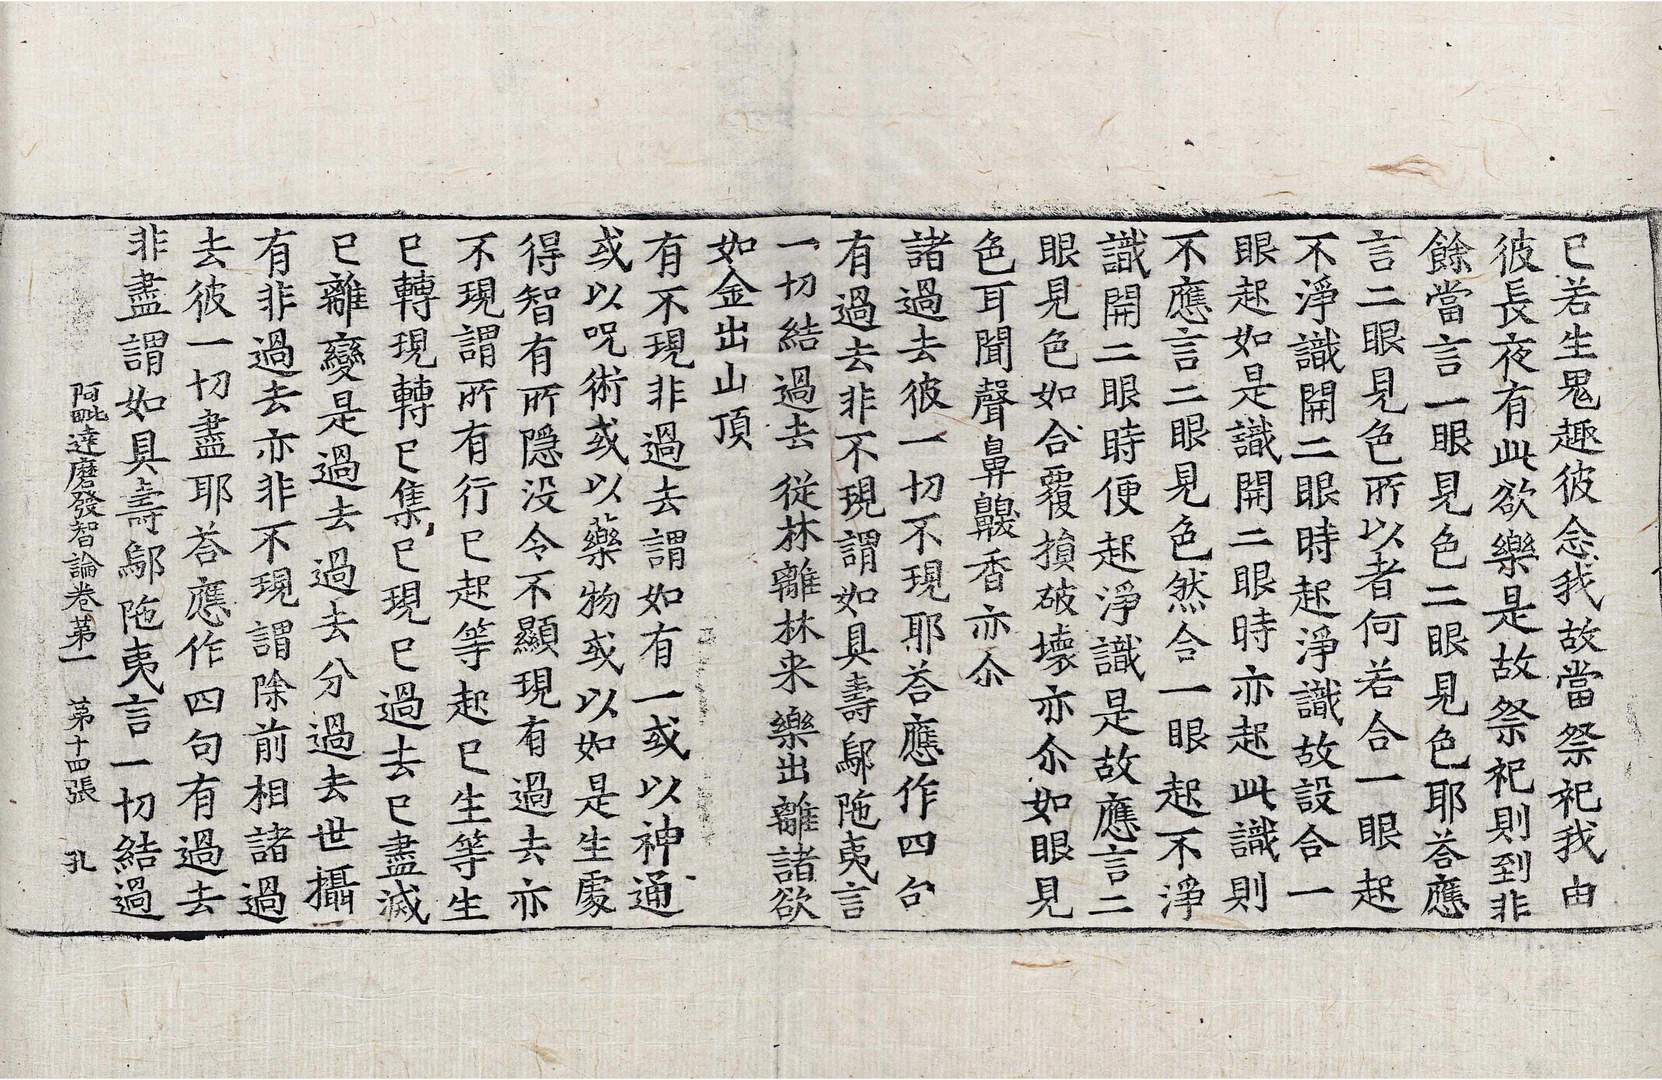 已若生鬼趣彼念我故當祭祀我由
彼長夜有此欲樂是故祭祀則到非
餘當言一眼見色二眼見色耶荅應
言二眼見色所以者何若合一眼起
不淨識開二眼時起淨識故設合一
眼起如是識開二眼時亦起此識則
不應言二眼見色然合一眼起不淨
識開二眼時便起淨識是故應言二
眼見色如合覆損破壞亦尒如眼見
色耳聞聲鼻齅香亦尒
諸過去彼一切不現耶荅應作四句
有過去非不現謂如具壽鄔陁夷言
一切結過去 從林離林来 樂出離諸欲
如金出山頂
有不現非過去謂如有一或以神通
或以呪術或以藥物或以如是生處
得智有所隱没令不顯現有過去亦
不現謂所有行已起等起已生等生
已轉現轉已集已現已過去已盡滅
已離變是過去過去分過去世攝
有非過去亦非不現謂除前相諸過
去彼一切盡耶荅應作四句有過去
非盡謂如具壽鄔陁夷言一切結過
阿毗達磨發智論卷第一 第十四張 孔